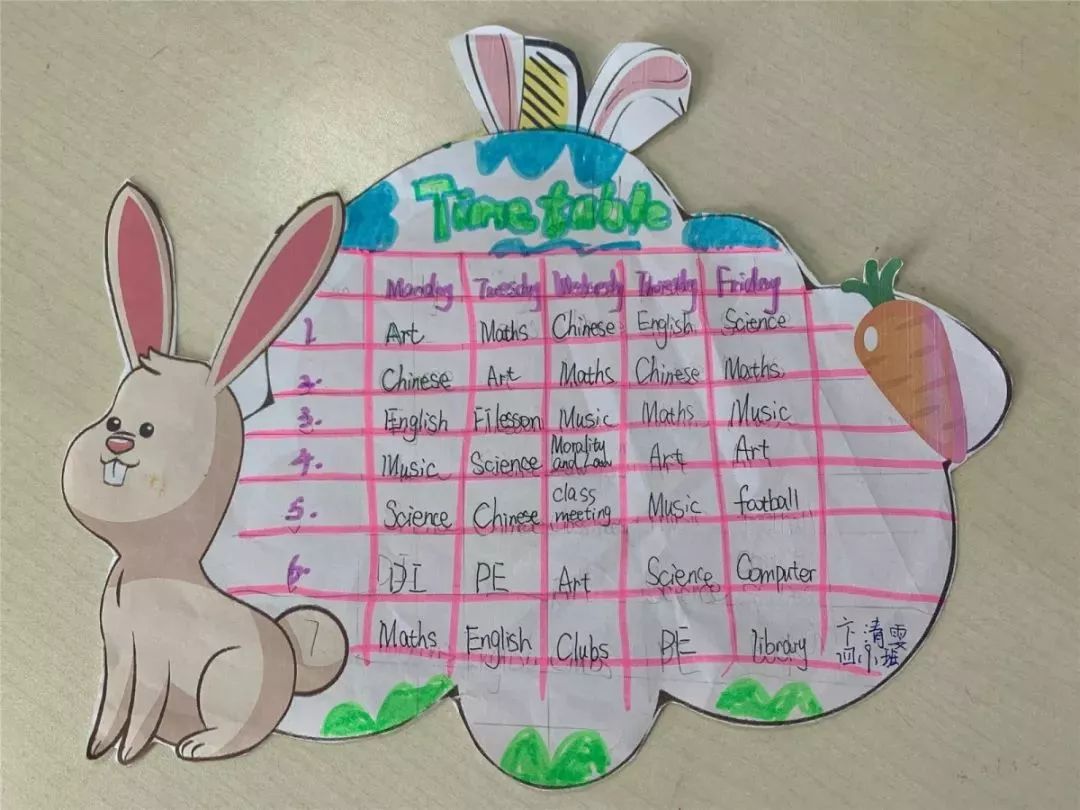 Timetable
Monday Tuesday Wednesday Thursday Friday
1. Art Maths Chinese English Science
2. Chinese Art Maths Chinese Maths
3. English FI lesson Music Maths Music
4. Music Science Morality and Law Art Art
5. Science Chinese class meeting Music football
6. DI PE Art Science Computer
7 Maths English Clubs PE library
卞清雯
四小班